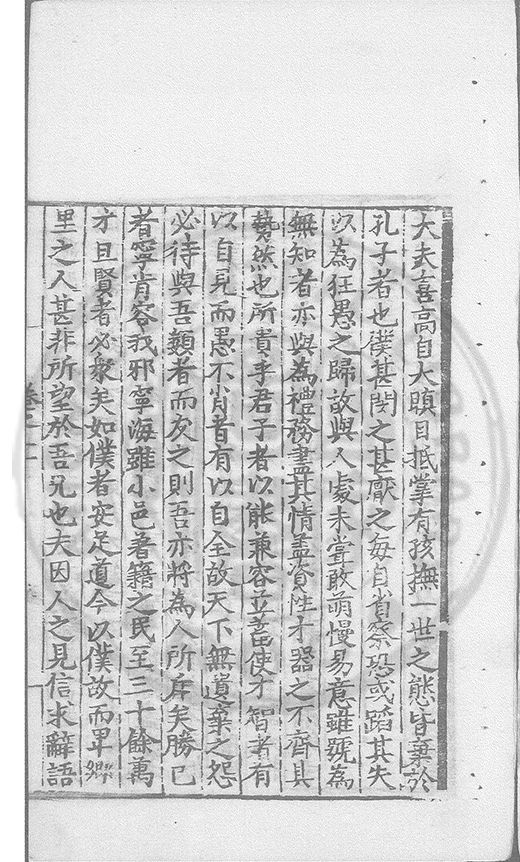 大夫喜高自大瞋目抵掌有孩撫一世之態皆棄於
孔子者也僕甚閔之甚厭之每自省察恐或蹈其失
以為狂愚之歸故與人處未嘗敢萌慢易意雖號為
無知者亦與為禮務盡其情盖資性才器之不齊其
勢然也所貴乎君子者以能兼容並蓄使才智者有
以自見而愚不肖者有以自全故天下無遺棄之怨
必待與吾類者而友之則吾亦將為人所斥矣勝己
者寧肯容我邪寧海雖小邑著籍之民至三十餘萬
才且賢者必衆矣如僕者安足道今以僕故而卑鄉
里之人甚非所望於吾兄也夫因人之見信求辭語
卷之一